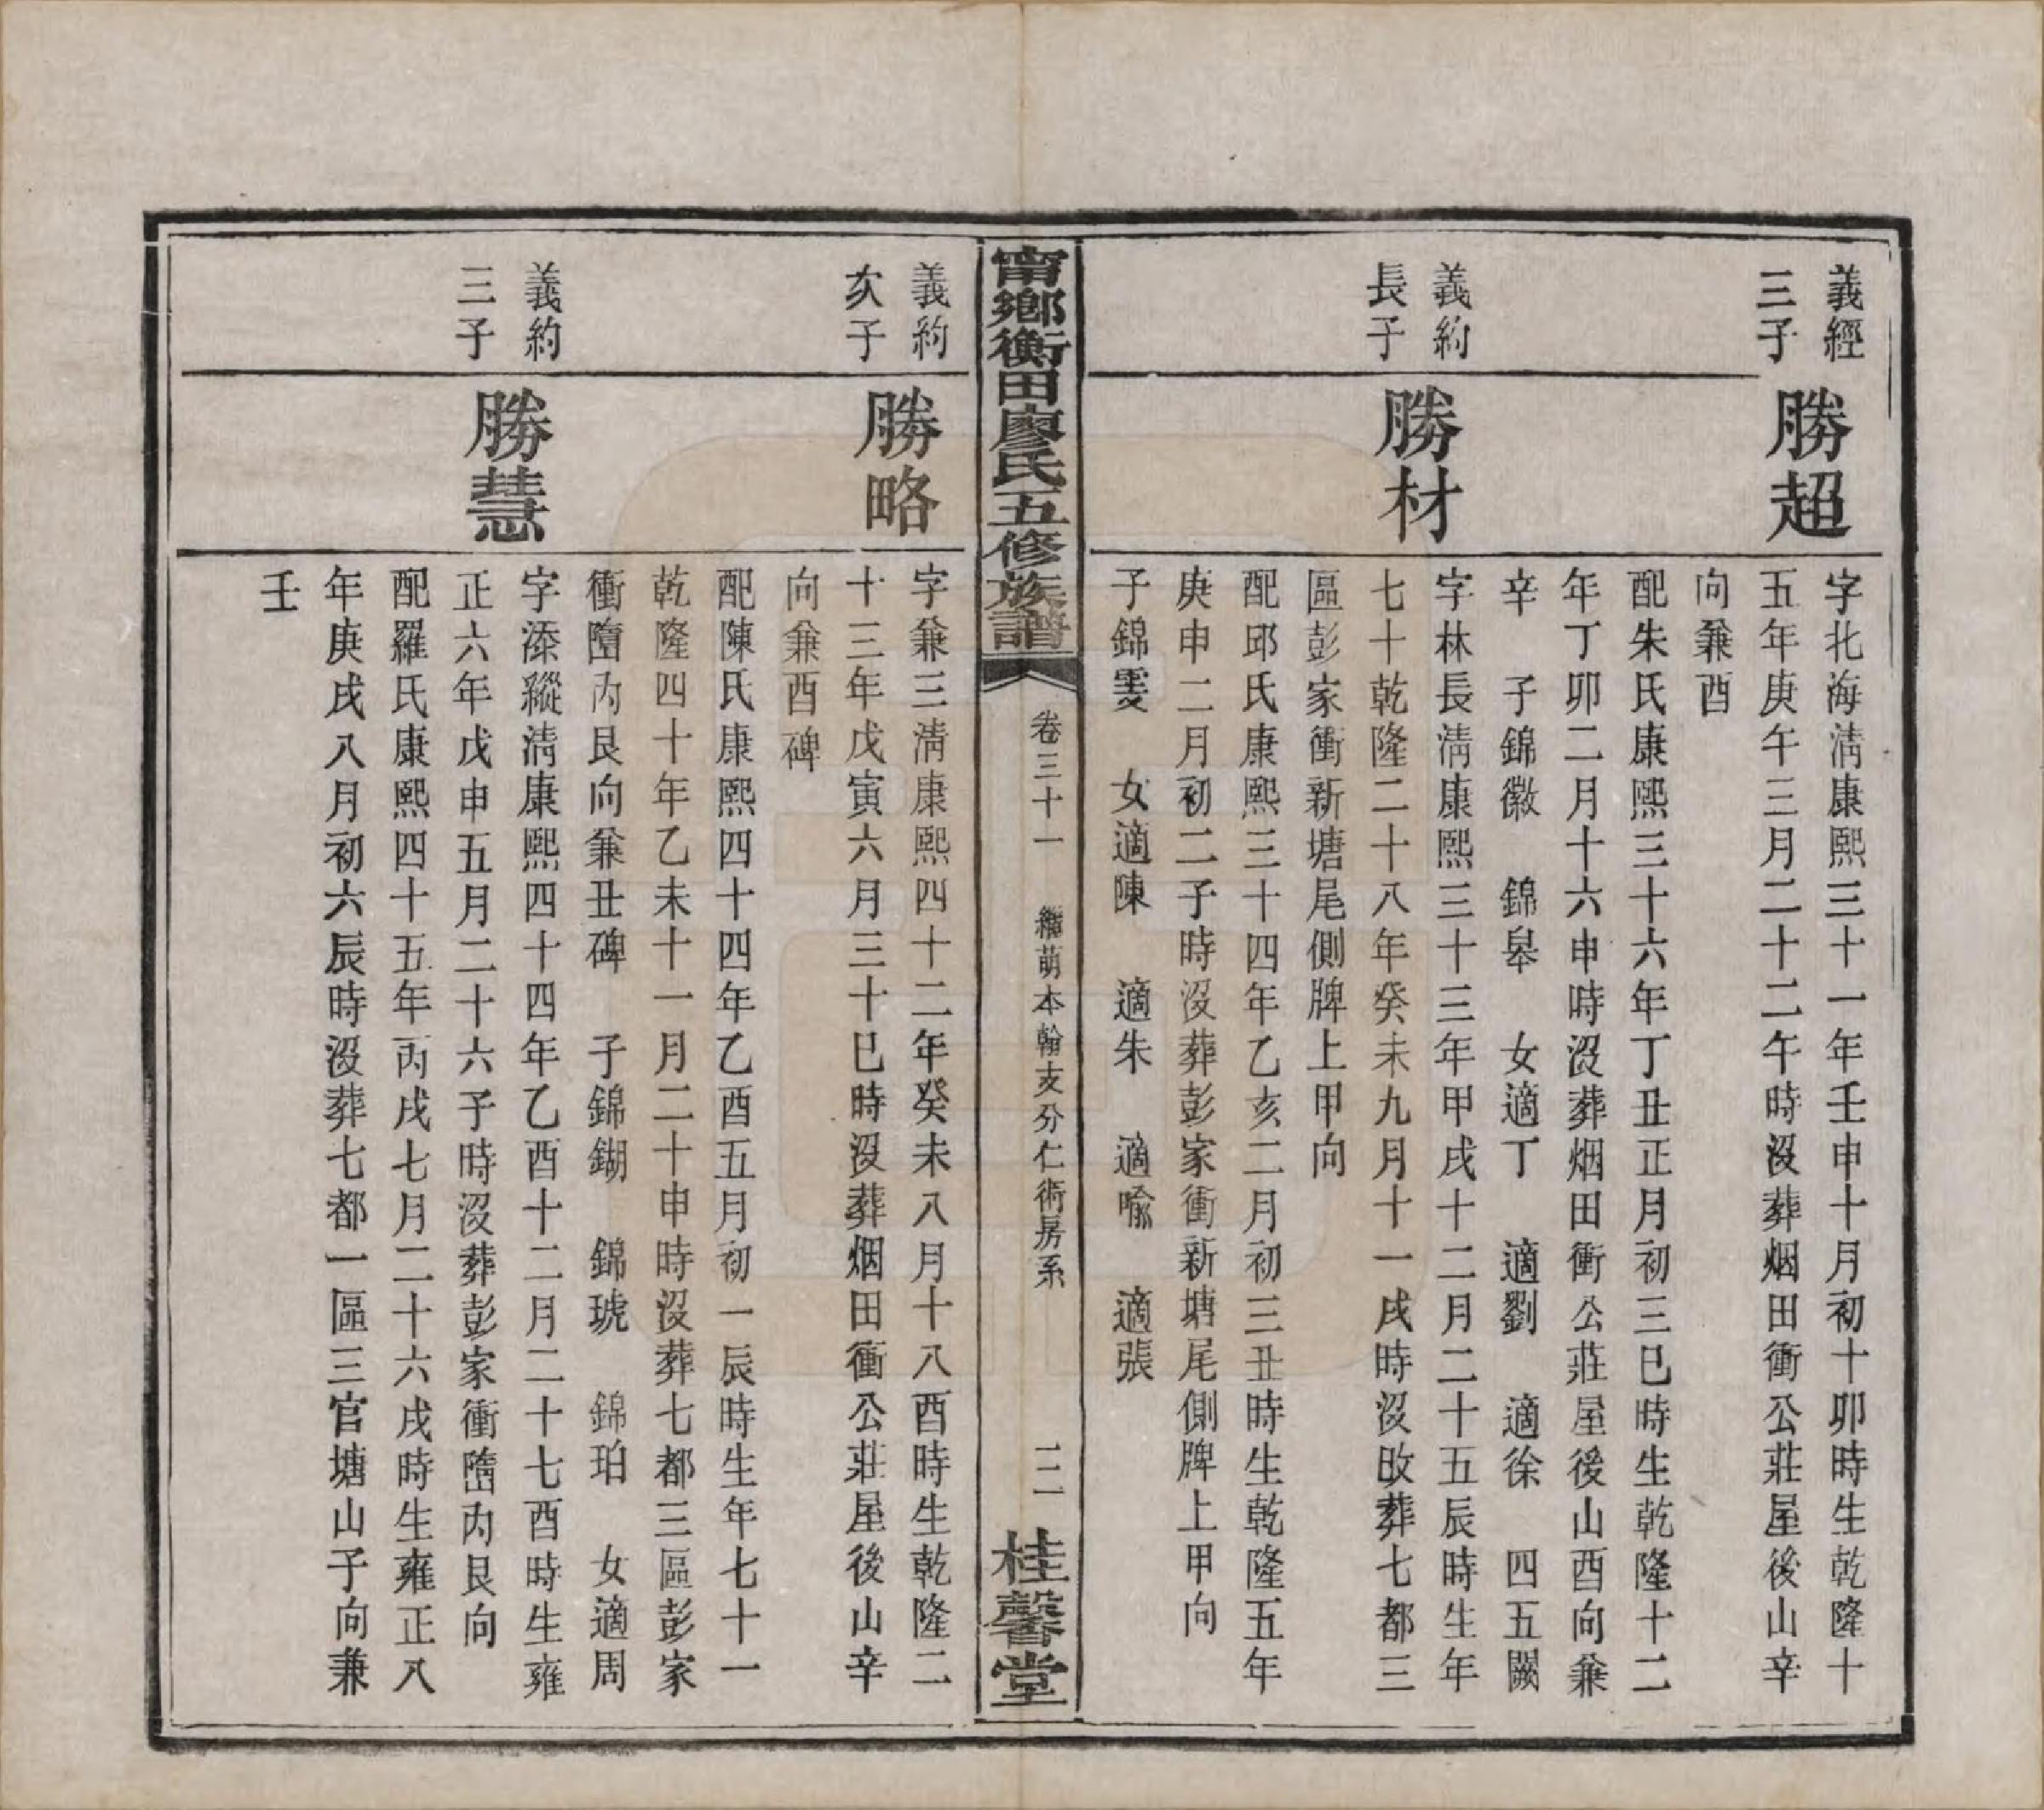 義經
三子
勝超
字北海淸康熙三十一年壬申十月初十卯時生乾隆十
五年庚午三月二十二午時沒葬烟田衝公莊屋後山辛
向兼酉
配朱氏康熙三十六年丁丑正月初三巳時生乾隆十二
年丁卯二月十六申時沒葬烟田衝公莊屋後山酉向兼
辛　子錦徽　錦皋　女適丁　適劉　適徐　四五闕
義約
長子
勝材
字林長淸康熙三十三年甲戌十二月二十五辰時生年
七十乾隆二十八年癸未九月十一戌時沒改葬七都三
區彭家衝新塘尾側牌上甲向
配邱氏康熙三十四年乙亥二月初三丑時生乾隆五年
庚申二月初二子時沒葬彭家衝新塘尾側牌上甲向
子錦雯　女適陳　適朱　適喩　適張
甯鄉衡田廖氏五修族譜
卷三十一　繼萌本翰支分仁術房系
二二
桂馨堂
義約
次子
勝略
字兼三淸康熙四十二年癸未八月十八酉時生乾隆二
十三年戊寅六月三十巳時沒葬烟田衝公莊屋後山辛
向兼酉碑
配陳氏康熙四十四年乙酉五月初一辰時生年七十一
乾隆四十年乙未十一月二十申時沒葬七都三區彭家
衝墮內艮向兼丑碑　子錦鍸　錦琥　錦珀　女適周
義約
三子
勝慧
字添縱淸康熙四十四年乙酉十二月二十七酉時生雍
正六年戊申五月二十六子時沒葬彭家衝墮內艮向
配羅氏康熙四十五年丙戌七月二十六戌時生雍正八
年庚戌八月初六辰時沒葬七都一區三官塘山子向兼
壬